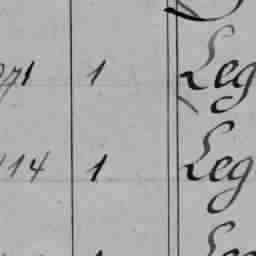 271 1 Leg
114 1 Leg